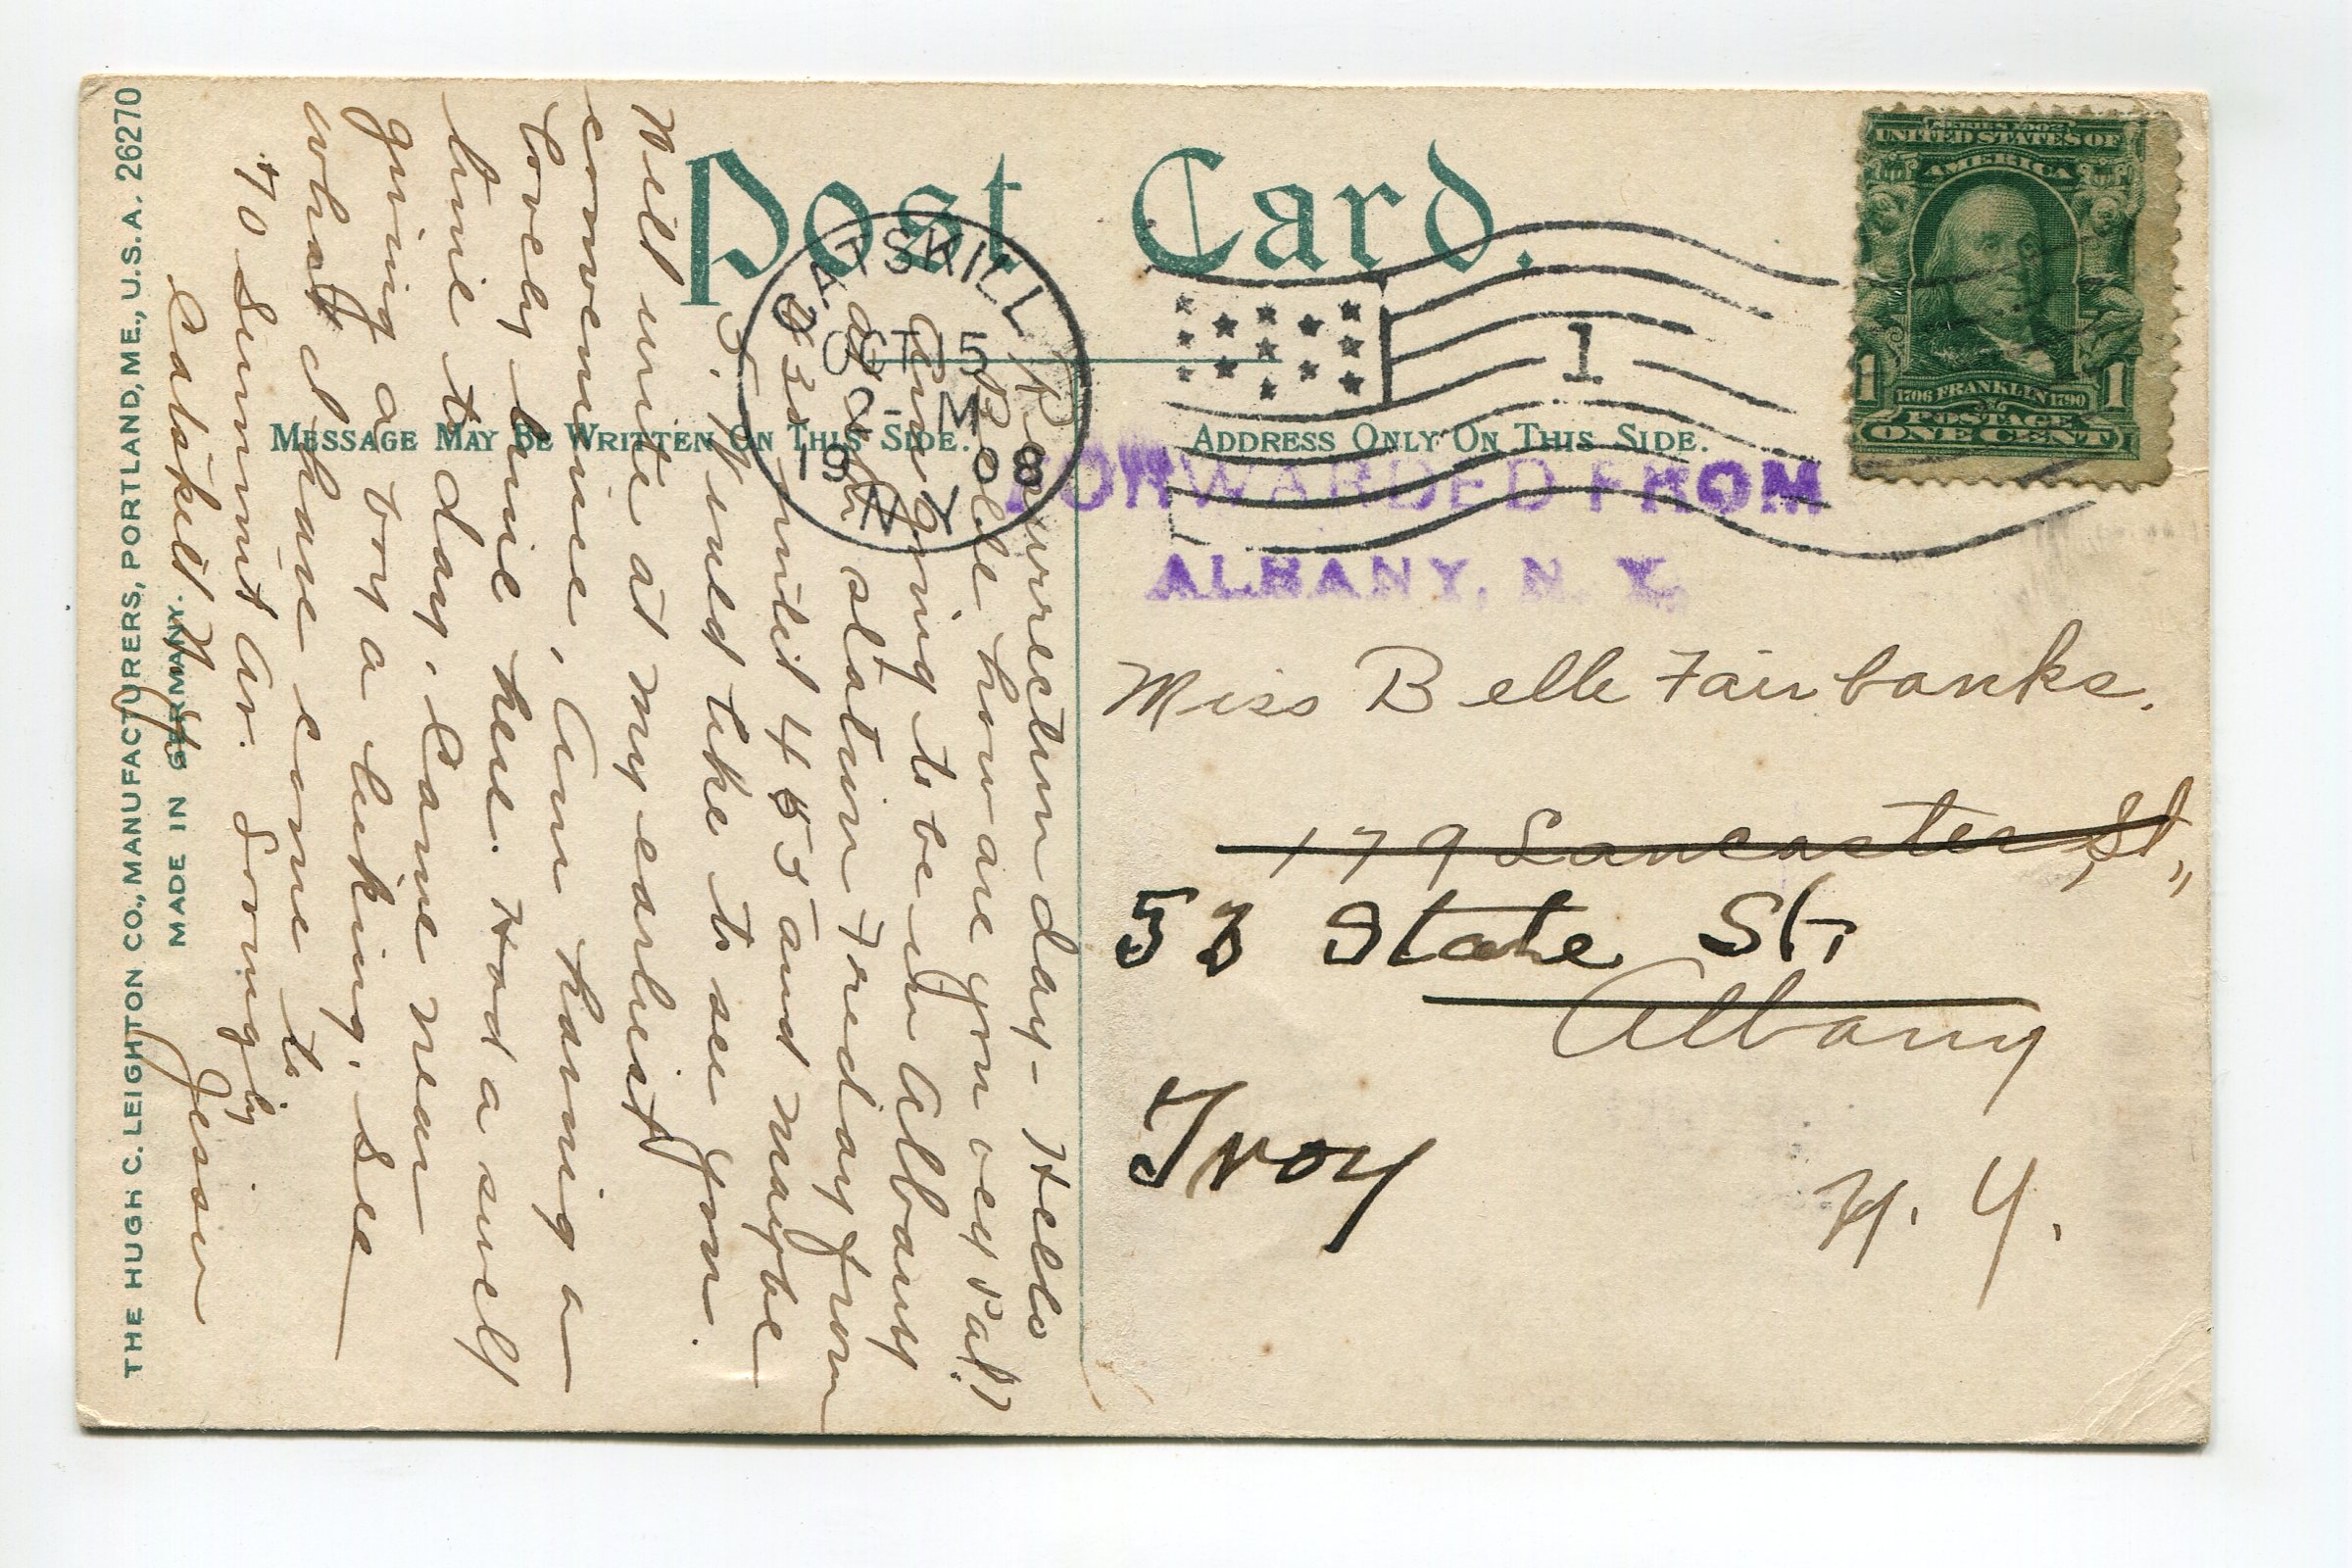 Post Card.
CATSKILL
OCT 15
2- M
1908
N Y
1
SERIES 1902
UNITED STATES OF
AMERICA
1706 FRANKLIN 1790
1 1
POSTAGE
ONE CENT
MESSAGE MAY BE WRITTEN ON THIS SIDE.
ADDRESS ONLY ON THIS SIDE.
FORWARDED FROM
ALBANY, N. Y.
Miss Belle Fairbanks.
179 Lancaster St,,
53 State St.
Albany
Troy
N. Y.
Resurrectun day - Hello
Belle how are you oey Pal?
Am going to be in Albany
at station Freday from
335 until 455 and maybe
5. Yould like to see you.
Will write at my earliest
convenine, Am having a
lovely time here. Had a swell
time to day, Came near
giving a boy a liking. See
what I have come to
70 Summit Av. Lovingly
Catskill N.Y. Jessie
THE HUGH C. LEIGHTON CO., MANUFACTURERS, PORTLAND, ME., U.S.A. 26270
MADE IN GERMANY.